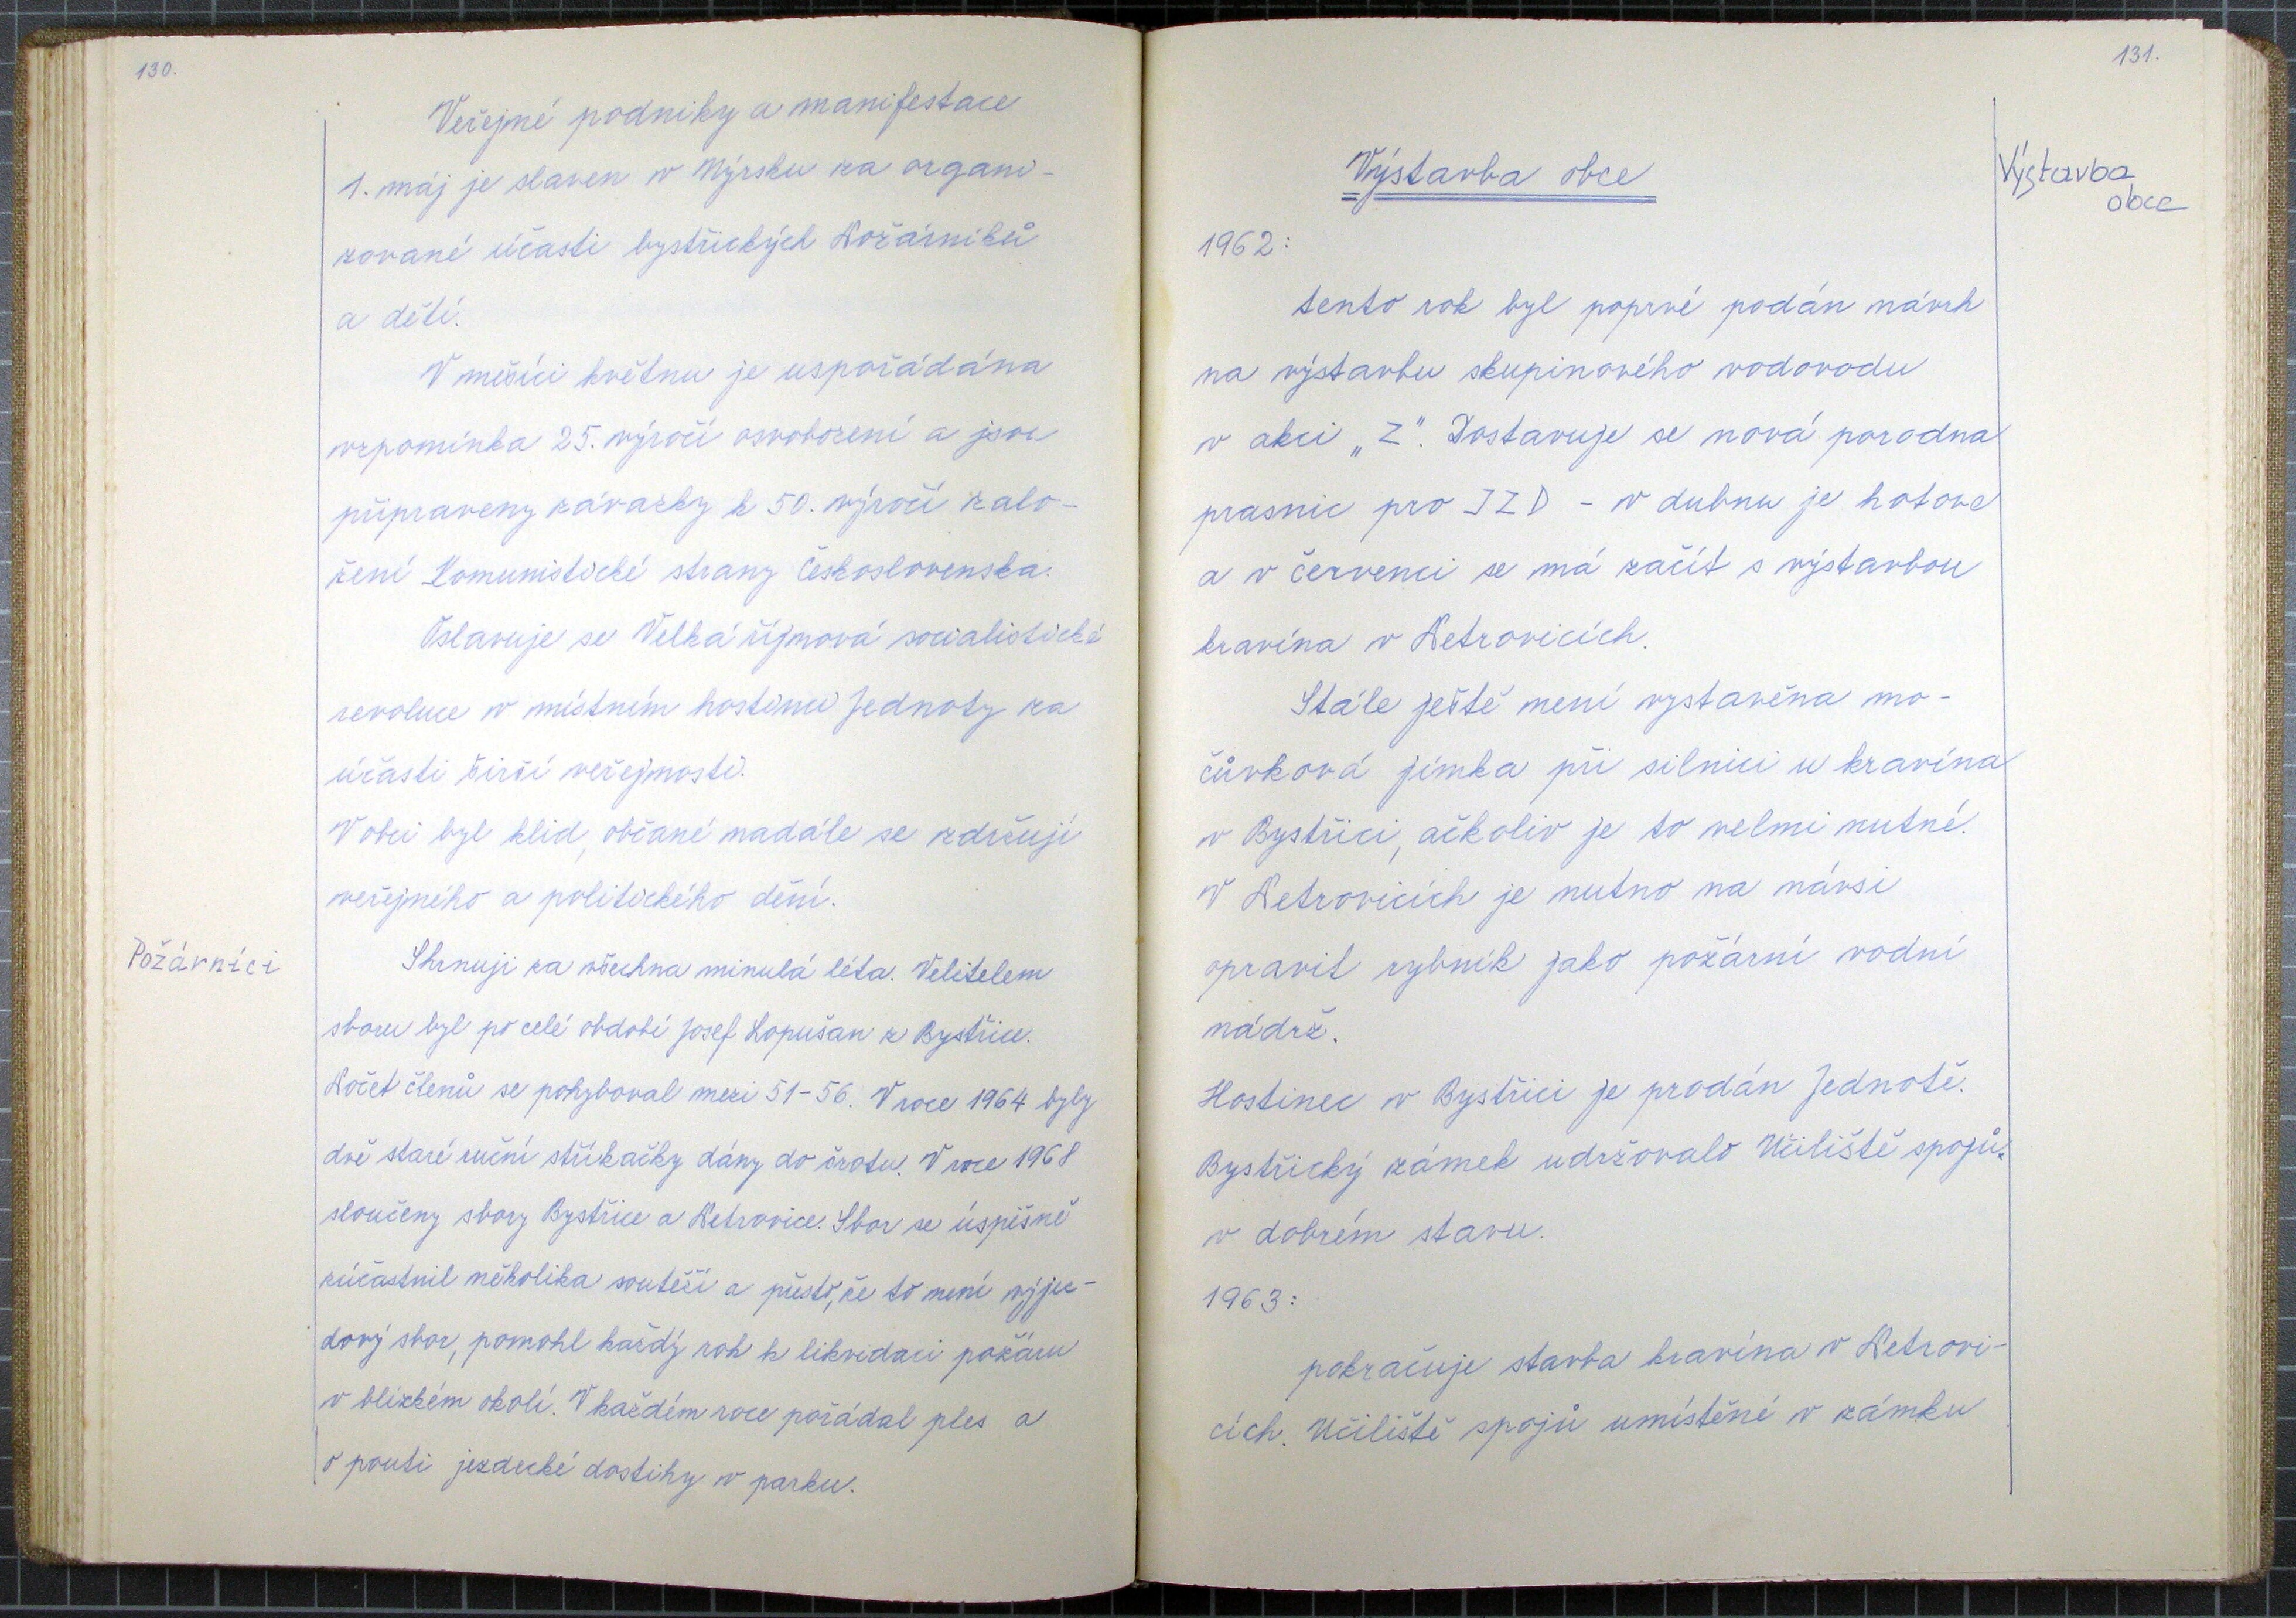 130.
Veřejné podniky a manifestace
1. máj je slaven v Nýrsku za organi-
zované účasti bystřických Požárníků
a dětí.
V měsíci květnu je uspořádána
vzpomínka 25. výročí osvobození a jsou
připraveny závazky k 50. výročí zalo-
žení Komunistické strany Československa.
Oslavuje se Velká říjnová socialistická
revoluce v místním hostinci Jednoty za
účasti širší veřejnosti.
V obci byl klid, občané nadále se zdržují
veřejného a politického dění.
Požárníci
Shrnuji za všechna minulá léta. Velitelem
sboru byl po celé období Josef Lopušan z Bystřice.
Počet členů se pohyboval mezi 51-56. V roce 1964 byly
dvě staré ruční stříkačky dány do šrotu. V roce 1968
sloučeny sbory Bystřice a Petrovice. Sbor se úspěšně
zúčastnil několika soutěží a přesto, že to není výjez-
dový sbor, pomohl každý rok k likvidaci požáru
v blízkém okolí. V každém roce pořádal ples a
o pouti jezdecké dostihy v parku.
131.
Výstavba obce
Výstavba
obce
1962:
tento rok byl poprvé podán návrh
na výstavbu skupinového vodovodu
v akci „Z". Dostavuje se nová porodna
prasnic pro JZD - v dubnu je hotova
a v červenci se má začít s výstavbou
kravína v Petrovicích.
Stále ještě není vystavěna mo-
čůvková jímka při silnici u kravína
v Bystřici, ačkoliv je to velmi nutné.
V Petrovicích je nutno na návsi
opravit rybník jako požární vodní
nádrž.
Hostinec v Bystřici je prodán Jednotě.
Bystřický zámek udržovalo Učiliště spojů
v dobrém stavu.
1963:
pokračuje stavba kravína v Petrovi-
cích. Učiliště spojů umístěné v zámku